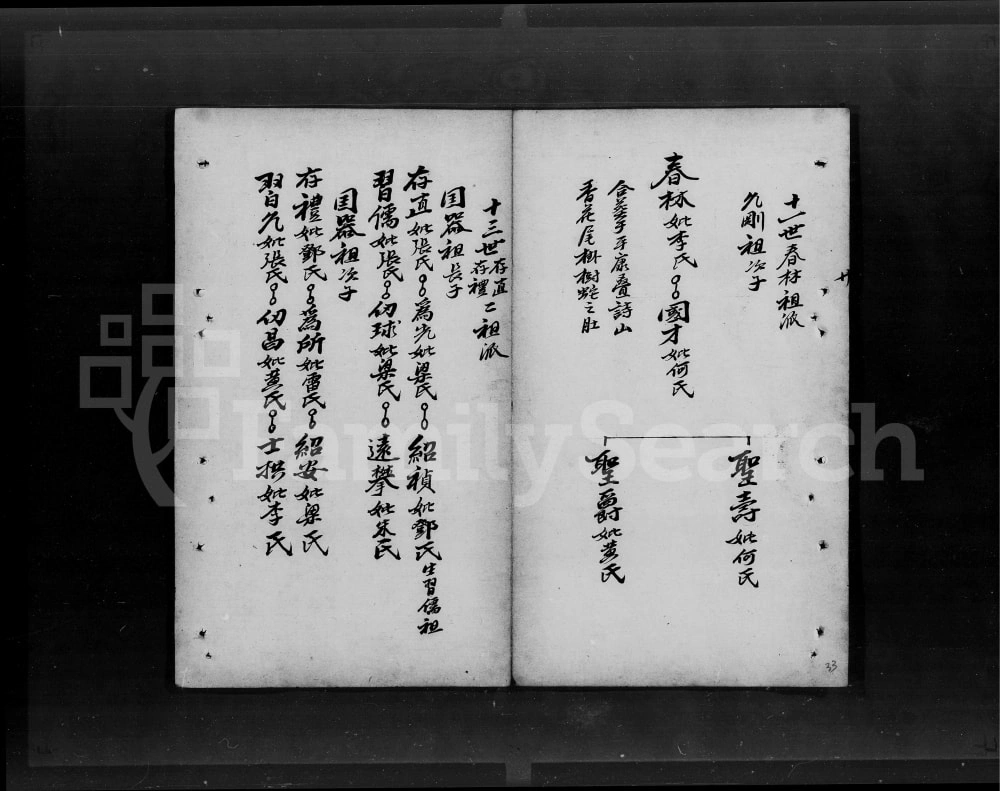 十一世春林祖派
允剛祖次子
春林妣李氏○○國才妣何氏
合葬于平康疊詩山
香花尾樹樹蛇之肚
聖壽妣何氏
聖爵妣黃氏
33
十三世存直存禮二祖派
国器祖長子
存直妣張氏○○為先妣梁氏○○紹禎妣鄧氏生習儒祖
習儒妣張氏○○仞球妣梁氏○○遠攀妣朱氏
国器祖次子
存禮妣鄧氏○○為所妣雷氏○○紹安妣梁氏
習允妣張氏○○仞昌妣黃氏○○士拱妣李氏
FamilySearch